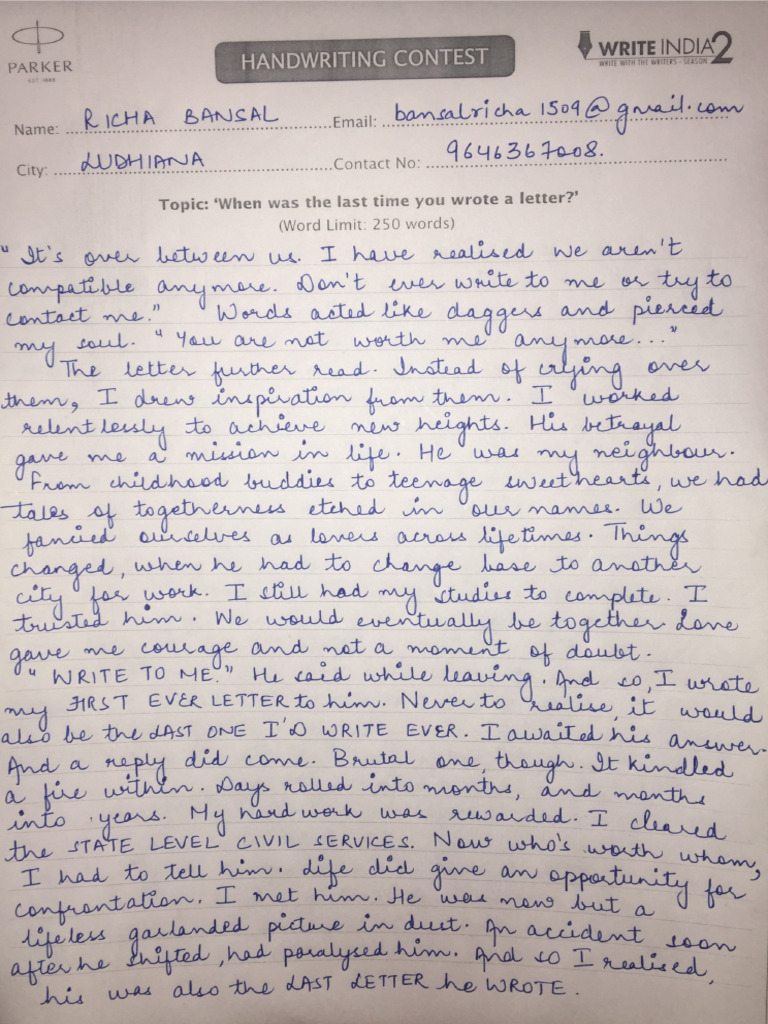 PARKER
EST. 1888
HANDWRITING CONTEST
WRITE INDIA 2
WRITE WITH THE WRITERS - SEASON
Name: RICHA BANSAL Email: bansalricha1509@gmail.com
City: LUDHIANA Contact No: 9646367008.
Topic: 'When was the last time you wrote a letter?'
(Word Limit: 250 words)
" It's over between us. I have realised we aren't
compatible anymore. Don't ever write to me or try to
contact me." Words acted like daggers and pierced
my soul. "You are not worth me anymore..."
The letter further read. Instead of crying over
them, I drew inspiration from them. I worked
relentlessly to achieve new heights. His betrayal
gave me a mission in life. He was my neighbour.
From childhood buddies to teenage sweethearts, we had
tales of togetherness etched in our names. We
fancied ourselves as lovers across lifetimes. Things
changed, when he had to change base to another
city for work. I still had my studies to complete. I
trusted him. We would eventually be together. Love
gave me courage and not a moment of doubt.
" WRITE TO ME." He said while leaving. And so, I wrote
my FIRST EVER LETTER to him. Never to realise, it would
also be the LAST ONE I'D WRITE EVER. I awaited his answer.
And a reply did come. Brutal one, though. It kindled
a fire within. Days rolled into months, and months
into years. My hard work was rewarded. I cleared
the STATE LEVEL CIVIL SERVICES. Now who's worth whom,
I had to tell him. Life did give an opportunity for
confrontation. I met him. He was now but a
lifeless garlanded picture in dust. An accident soon
after he shifted, had paralysed him. And so I realised,
his was also the LAST LETTER he WROTE.